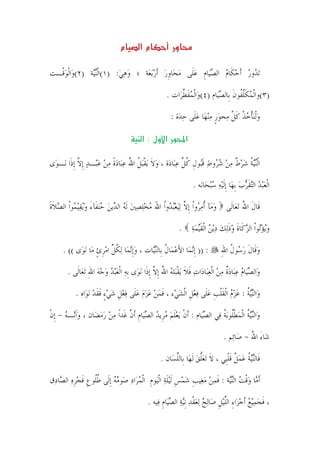 محاور أحكام الصيام
تَدُورُ أَحْكَامُ الصِّيَامِ عَلَى مَحَاوِرَ أَرْبَعَة ؛ وَهِيَ: (١)النِّيَّة (٢)وَالْوَقْت
(٣)والْمُكَلَّفُونَ بِالصِّيَامِ (٤)وَالْمُفَطِّرَات .
وَلْنَأْخُذْ كُلَّ مِحْوَرٍ مِنْهَا عَلَى حِدَه :
المحور الأول : النية
النِّيَّةُ شَرْطٌ مِنْ شُرُوطِ قَبُولِ كُلِّ عِبَادَة ، وَلاَ يَقْبَلُ اللَّهُ عِبَادَةً مِنْ عَبْدٍ إِلاَّ إِذَا نَوَى
الْعَبْدُ التَّقَرُّبَ بِهَا إِلَيْهِ سُبْحَانَه .
قَالَ اللَّهُ تَعَالَى ﴿ وَمَا أُمِرُوا إِلاَّ لِيَعْبُدُوا اللَّهَ مُخْلِصِينَ لَهُ الدِّينَ حُنَفَاءَ وَيُقِيمُوا الصَّلاَةَ
وَيُؤْتُوا الزَّكَاةَ وَذَلِكَ دِينُ الْقَيِّمَةِ ﴾ .
وَقَالَ رَسُولُ اللهِ ﷺ : (( إِنَّمَا الأَعْمَالُ بِالنِّيَّات ، وَإِنَّمَا لِكُلِّ امْرِئٍ مَا نَوَى )) .
وَالصِّيَامُ عِبَادَةٌ مِنَ الْعِبَادَاتِ فَلاَ يَقْبَلُهُ اللَّهُ إِلاَّ إِذَا نَوَى بِهِ الْعَبْدُ وَجْهَ اللهِ تَعَالَى .
وَالنِّيَّةُ : عَزْمُ الْقَلْبِ عَلَى فِعْلِ الشَّيْء ، فَمَنْ عَزَمَ عَلَى فِعْلِ شَيْءٍ فَقَدْ نَوَاه .
وَالنِّيَّةُ الْمَطْلُوبَةُ فِي الصِّيَامِ : أَنْ يَعْلَمَ مُرِيدُ الصِّيَامِ أَنَّ غَداً مِنْ رَمَضَان ، وَأَنَّهُ – إِنْ
شَاءَ اللَّهُ – صَائِم .
فَالنِّيَّةُ عَمَلٌ قَلْبِي ، لاَ تَعَلُّقَ لَهَا بِاللِّسَان .
أَمَّا وَقْتُ النِّيَّة : فَمِنْ مَغِيبِ شَمْسِ لَيْلَةِ الْيَوْمِ الْمُرَادِ صَوْمُهُ إِلَى طُلُوعِ فَجْرِهِ الصَّادِق
، فَجَمِيعُ أَجْزَاءِ اللَّيْلِ صَالِحٌ لِعَقْدِ نِيَّةِ الصِّيَامِ فِيه .